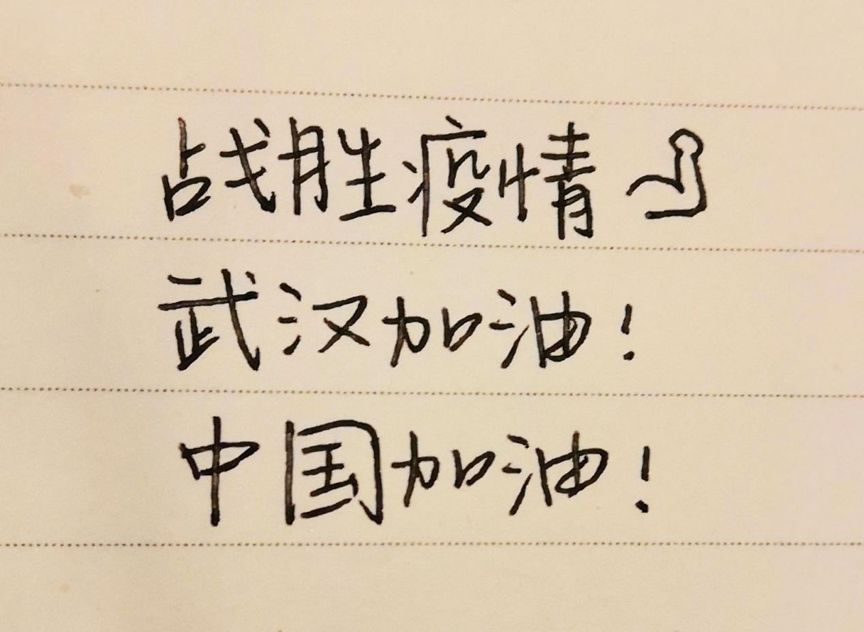 战胜疫情
武汉加油！
中国加油！